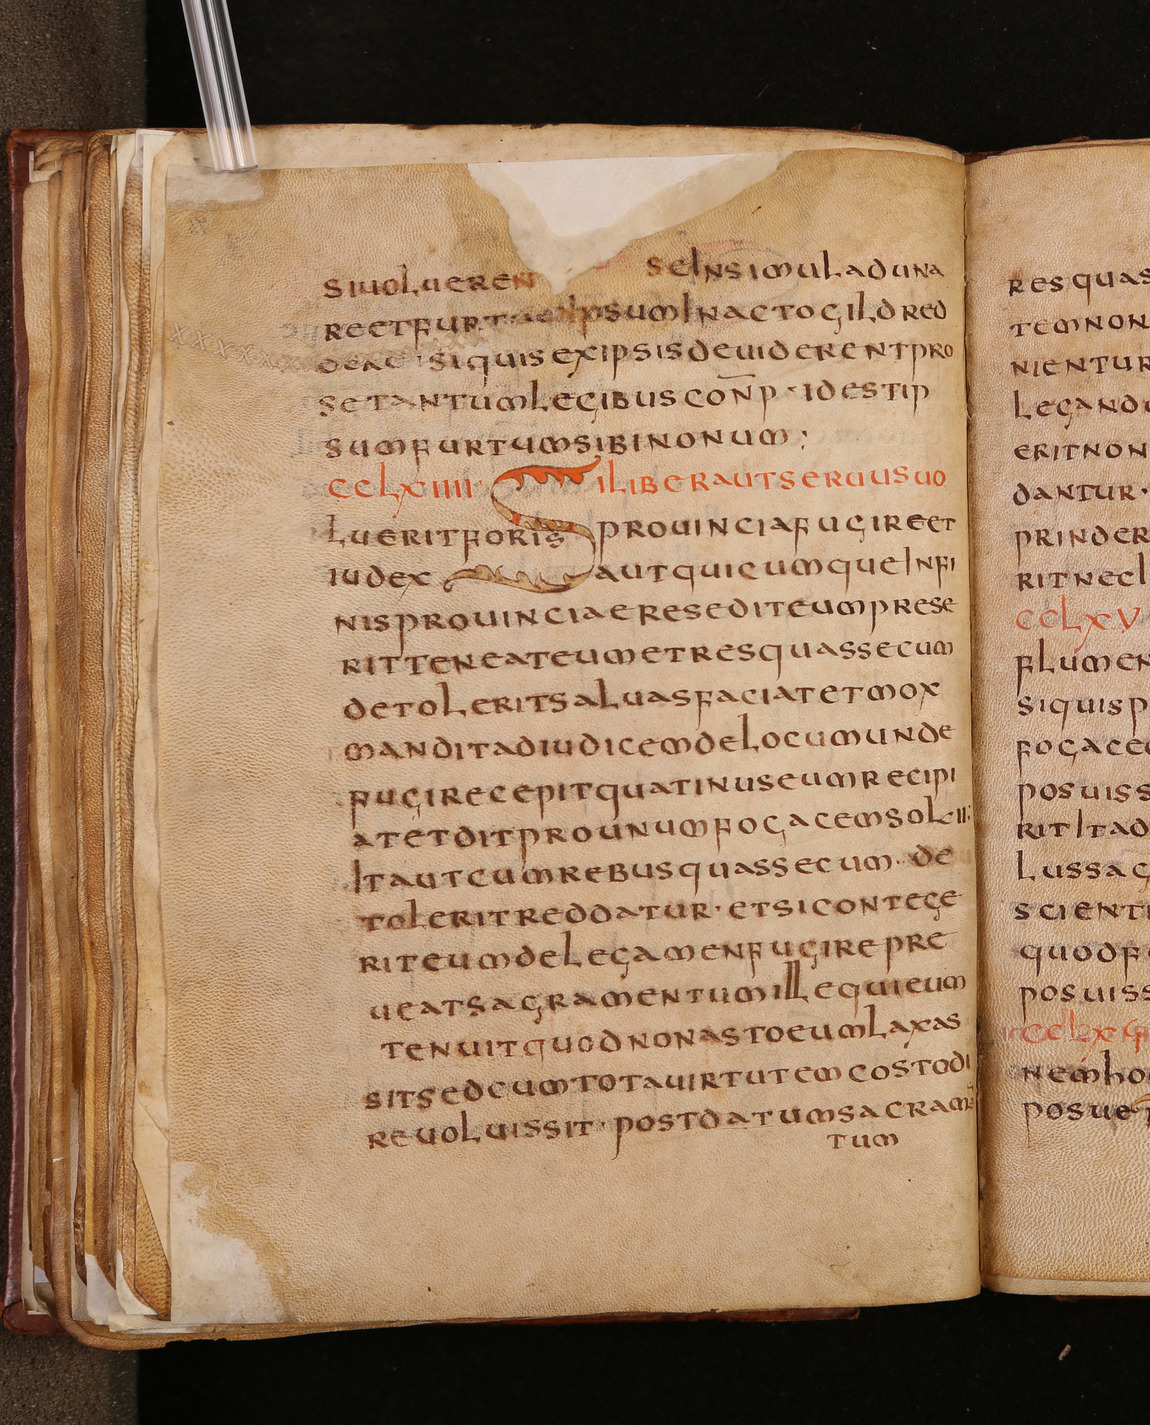 siuolueren se insimul aduna
reet furt ipsum in actogild red
deat si quis ex ipsis deuiderent pro
se tantum legibus conp · id est ip
sum furtum sibi nonum :
cclxiiii Si liber aut seruus uo
luerit foris prouincia fugire et
iudex aut quicumque in fi
nis prouinciae resedit eum prese
rit teneat eum et res quas secum
detolerit saluas faciat et mox
mandit ad iudicem de locum unde
fugire cepit quatinus eum recipi
at et dit pro unum fogacem sol ii:
Ita ut cum rebus quas secum · de
tolerit reddatur · et si contege
rit eum de legamen fugire pre
ueat sagramentum ille qui eum
tenuit quod non asto eum laxas
sit sed cum tota uirtutem costodi
re uoluissit · post datum sacram
tum
res quas
tem non
nientur
legand
erit non
dantur ·
prinder
rit nec
cclxv
flumen
si quis p
fogace
posuiss
rit Itad
lussag
scienti
quod f
posuiss
cclx
nem ho
posue